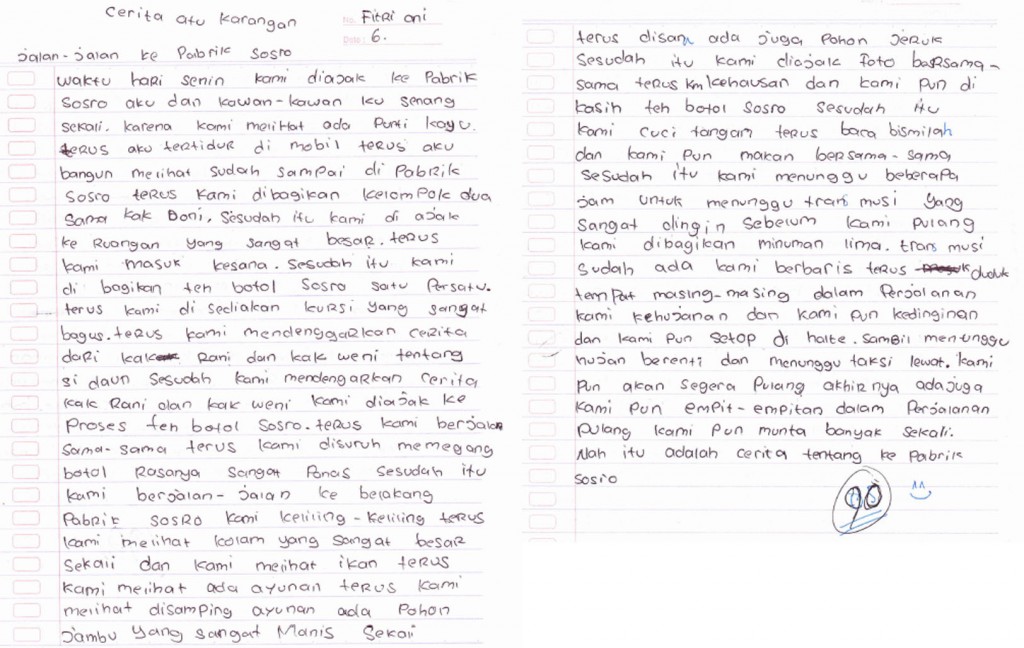 Cerita atu karangan
No. Fitri ani
Date: 6.
Jalan-jalan ke Pabrik Sosro
waktu hari senin kami diajak ke Pabrik
Sosro aku dan kawan-kawan ku senang
sekali. karena kami melihat ada Punti kayu.
terus aku tertidur di mobil terus aku
bangun melihat sudah sampai di Pabrik
Sosro terus kami dibagikan kelompok dua
sama kak Boni, sesudah itu kami di ajak
ke Ruangan yang sangat besar. terus
kami masuk kesana. sesudah itu kami
di bagikan teh botol Sosro satu Persatu.
terus kami di sediakan kursi yang sangat
bagus. terus kami mendenggarkan cerita
dari kak Rani dan kak weni tentang
si daun sesudah kami mendengarkan cerita
kak Rani dan kak weni kami diajak ke
Proses teh botol Sosro. terus kami berjalan
sama-sama terus kami disuruh memegang
botol Rasanya sangat Panas sesudah itu
kami berjalan-jalan ke belakang
Pabrik sosro kami keliling-keliling terus
kami melihat kolam yang sangat besar
sekali dan kami melihat ikan terus
kami melihat ada ayunan terus kami
melihat disamping ayunan ada Pohon
jambu yang sangat Manis Sekali
terus disana ada juga Pohon Jeruk
Sesudah itu kami diajak foto barsama-
sama terus km kehausan dan kami pun di
kasih teh botol sosro sesudah itu
kami cuci tangam terus baca bismilah
dan kami pun makan bersama-sama
sesudah itu kami menunggu beberapa
jam untuk menunggu trans musi yang
sangat dingin sebelum kami pulang
kami dibagikan minuman lima. trans musi
sudah ada kami berbaris terus duduk
tempat masing-masing dalam Perjalanan
kami kehujanan dan kami pun kedinginan
dan kami pun setop di halte. sambil menunggu
hujan berenti dan menunggu taksi lewat. kami
pun akan segera pulang akhirnya ada juga
kami pun empit-empitan dalam Perjalanan
pulang kami pun munta banyak sekali.
Nah itu adalah cerita tentang ke Pabrik
sosro
90